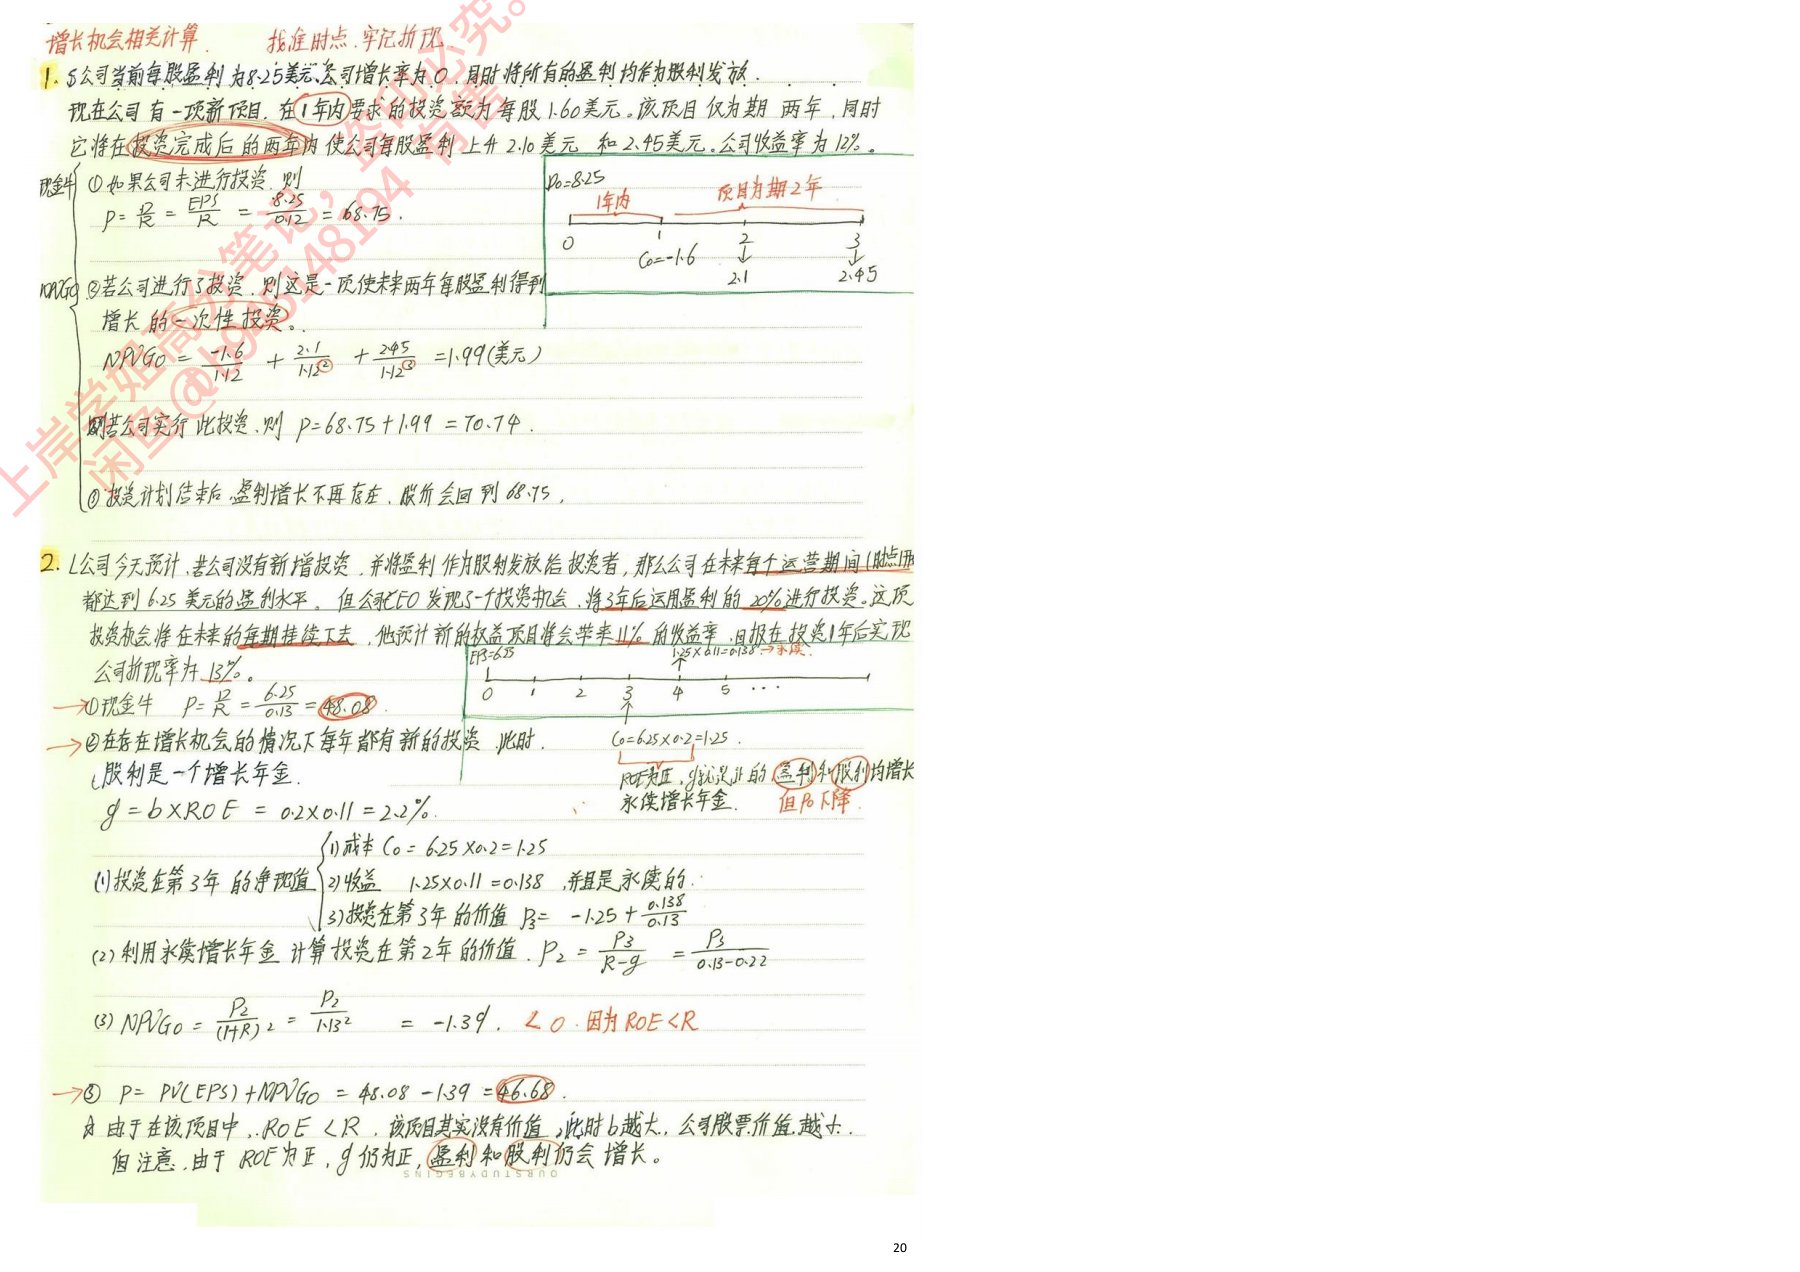 增长机会相关计算. 找准时点.牢记折现
1. S公司当前每股盈利为8.25美元、公司增长率为0.同时将所有的盈利均作为股利发放.
现在公司有一项新项目.在1年内要求的投资额为每股1.60美元。该项目仅为期两年,同时
它将在投资完成后的两年内使公司每股盈利上升2.10美元和2.45美元。公司收益率为12%。
现金牛 ①如果公司未进行投资.则
P=D/R=EPS/R=8.25/0.12=68.75.
P0=8.25
1年内 项目为期2年
0 1 2 3
C0=-1.6 2.1 2.45
NPVGO ②若公司进行了投资.则这是一项使未来两年每股盈利得到
增长的一次性投资。
NPVGO=-1.6/1.12+2.1/1.12²+2.45/1.12³=1.99(美元)
若公司实行此投资.则P=68.75+1.99=70.74.
③投资计划结束后.盈利增长不再存在.股价会回到68.75.
2. L公司今天预计.若公司没有新增投资.并将盈利作为股利发放给投资者,那么公司在未来每个运营期间(时点1开
都达到6.25美元的盈利水平。但公司CEO发现了一个投资机会.将3年后运用盈利的20%进行投资。这项
投资机会将在未来的每期持续下去.他预计新的权益项目将会带来11%的收益率.回报在投资1年后实现
公司折现率为13%。
EPS=6.25 1.25×0.11=0.138→永续.
0 1 2 3 4 5 ...
→①现金牛 P=D/R=6.25/0.13=48.08.
→②在存在增长机会的情况下每年都有新的投资.此时. C0=6.25×0.2=1.25.
股利是一个增长年金. ROE为正,g就是正的,盈利和股利均增长
永续增长年金. 但P0下降.
g=b×ROE=0.2×0.11=2.2%.
(1)投资在第3年的净现值
1)成本C0=6.25×0.2=1.25
2)收益 1.25×0.11=0.138,并且是永续的.
3)投资在第3年的价值P3=-1.25+0.138/0.13
(2)利用永续增长年金计算投资在第2年的价值.P2=P3/R-g=P3/0.13-0.22
(3)NPVGO=P2/(1+R)²=P2/1.13²=-1.39.<0.因为ROE<R
→③ P=PV(EPS)+NPVGO=48.08-1.39=46.68.
☆由于在该项目中,ROE<R.该项目其实没有价值,此时b越大.公司股票价值越小.
但注意.由于ROE为正,g仍为正,盈利和股利仍会增长。
OURSTUDYBEGINS
上岸学姐高分笔记,盗印必究。
20